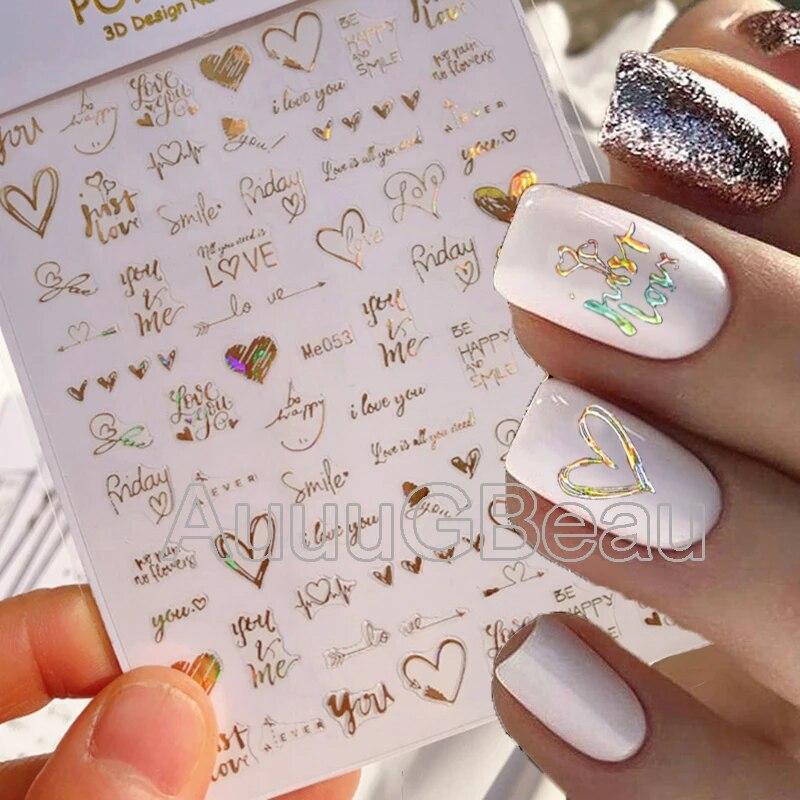 3D Design Na
just
love
BE
HAPPY
AND
SMILE
no rain
no flowers
Love
you
be
happy
i love you
you
4EVER
you!
Love is all you need
you.
just
love
Smile
Friday
All you need is
LOVE
love
Friday
you
&
me
lo ve
Me053
you
&
me
BE
HAPPY
AND
SMILE
Love
you
be
happy
i love you
Love is all you need
Friday
4EVER
Smile
you!
AuuuGBeau
no rain
no flowers
i love you
you.
you
&
me
lo ve
BE
HAPPY
AND
SMILE
Love
just
love
4EVER
you
just
love